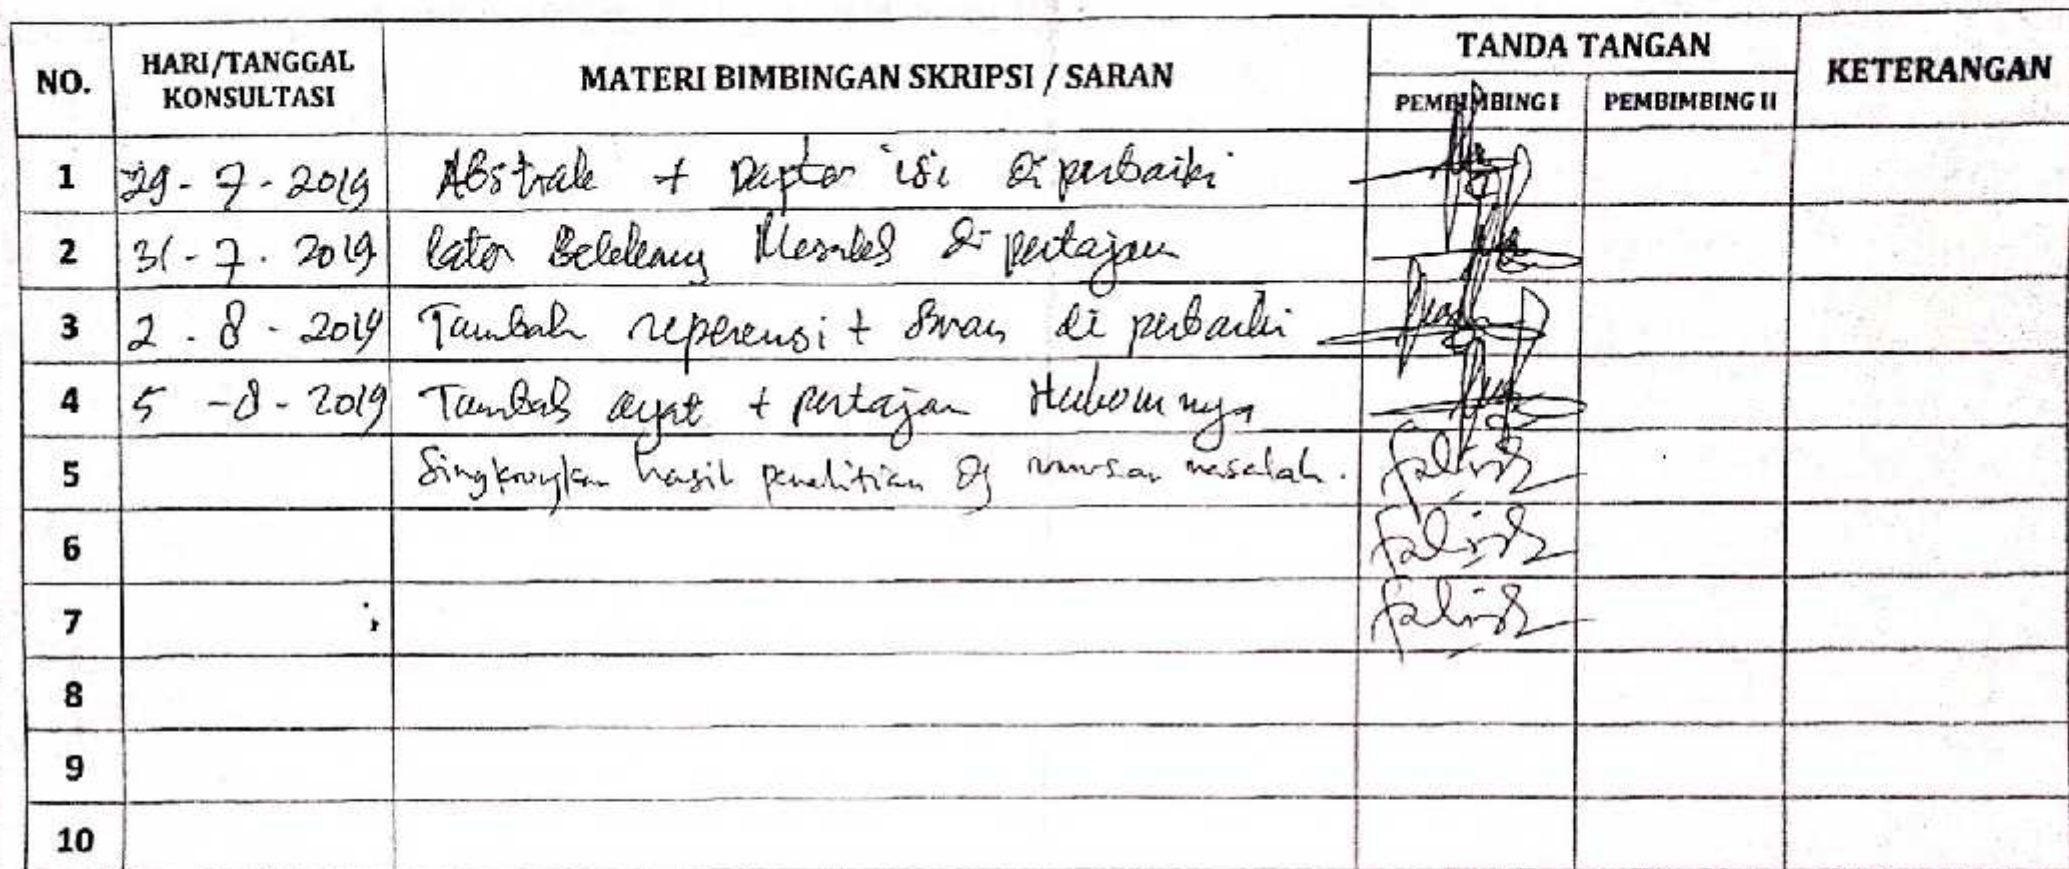 NO. HARI/TANGGAL KONSULTASI MATERI BIMBINGAN SKRIPSI / SARAN TANDA TANGAN KETERANGAN
PEMBIMBING I PEMBIMBING II
1 29 - 7 - 2019 Abstrak + Daptar isi di perbaiki
2 31 - 7 - 2019 Latar Belakang Masalah di pertajam
3 2 - 8 - 2019 Tambah reperensi + di perbaiki
4 5 - 8 - 2019 Tambah ayat + pertajam
5 hasil penelitian dg rumusan masalah.
6
7
8
9
10